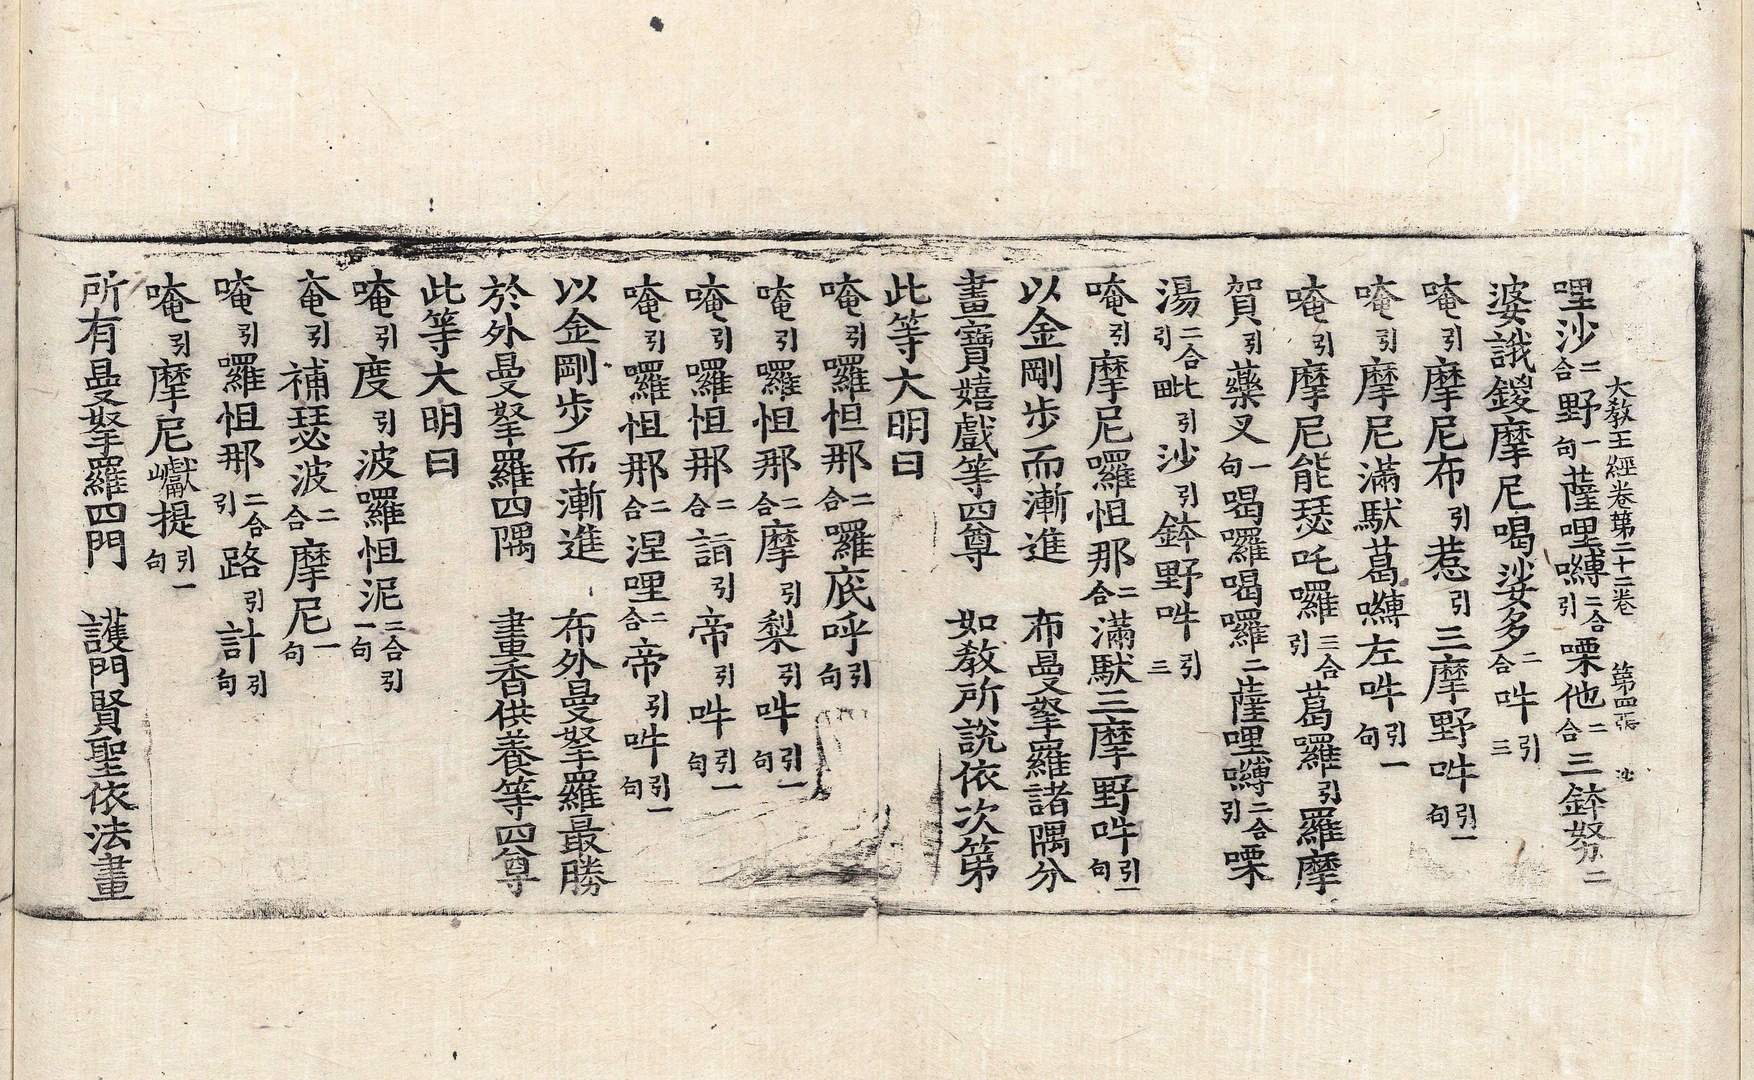 大教王經卷第二十二卷 第四張 沙
哩沙二合野一句薩哩嚩二合引㗚他二合三鉢努二
婆誐鑁摩尼喝娑多二合吽引三
唵引摩尼布引惹引三摩野吽引一句
唵引摩尼滿馱葛嚩左吽引一句
唵引摩尼能瑟吒囉三合引葛囉引羅摩
賀引藥叉一句喝囉喝囉二薩哩嚩二合引㗚
湯二合引毗引沙引鉢野吽引三
唵引摩尼囉怛那二合滿馱三摩野吽引一句
以金剛步而漸進 布曼拏羅諸隅分
畫寶嬉戲等四尊 如教所說依次第
此等大明曰
唵引囉怛那二合囉底呼引句
唵引囉怛那二合摩引梨引吽引一句
唵引囉怛那二合誐引帝引吽引一句
唵引囉怛那二合涅哩二合帝引吽引一句
以金剛步而漸進 布外曼拏羅最勝
於外曼拏羅四隅 畫香供養等四尊
此等大明曰
唵引度引波囉怛泥二合引一句
唵引補瑟波二合摩尼一句
唵引囉怛那二合引路引計引句
唵引摩尼巘提引一句
所有曼拏羅四門 護門賢聖依法畫